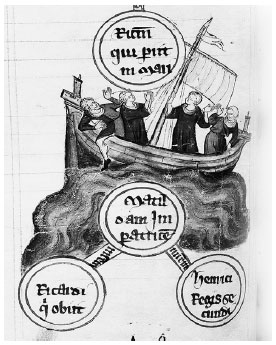 Ricm̄
qui piit
in mari
Matil
dam Im
patricē
Ricardi
q̇ obiit
Henrici
Regis se
cundi